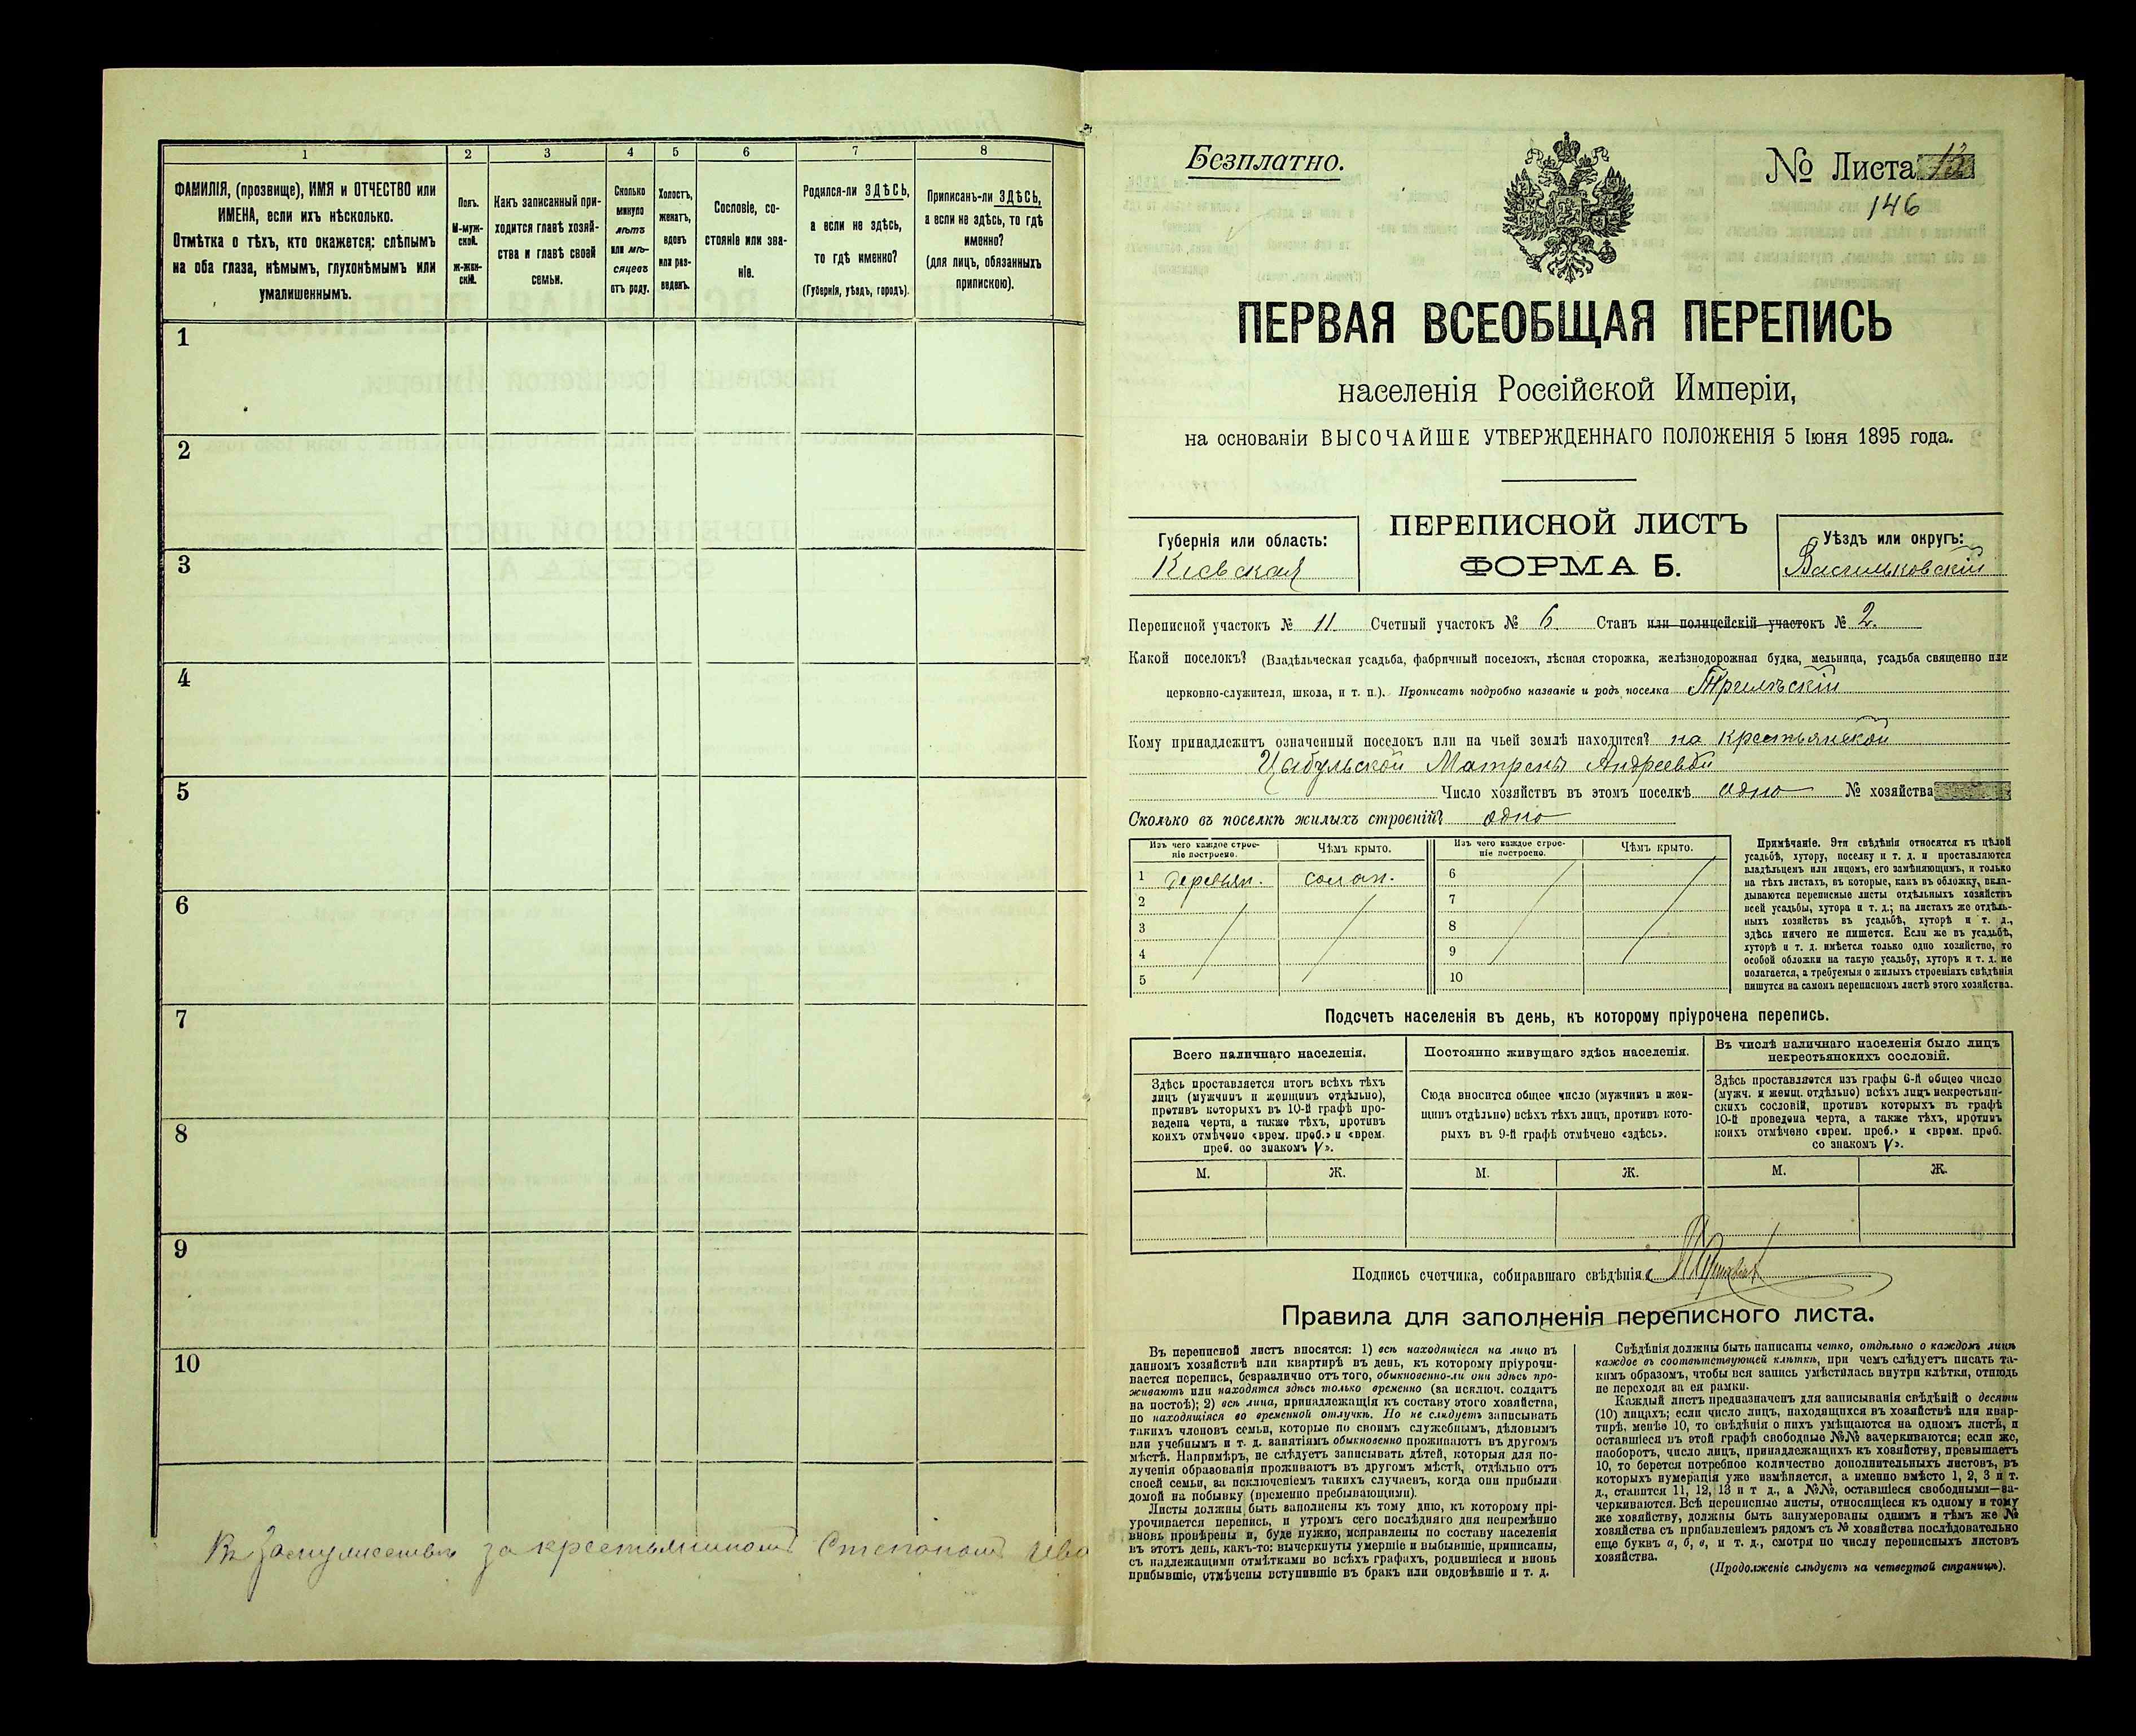 1
2
3
4
5
6
7
8
ФАМИЛІЯ, (прозвище), ИМЯ и ОТЧЕСТВО или
ИМЕНА, если ихъ нѣсколько.
Отмѣтка о тѣхъ, кто окажется: слѣпымъ
на оба глаза, нѣмымъ, глухонѣмымъ или
умалишеннымъ.
Полъ.
М-муж-
ской.
ж-жен-
скій.
Какъ записанный при-
ходится главѣ хозяй-
ства и главѣ своей
семьи.
Сколько
минуло
лѣтъ
или мѣ-
сяцевъ
отъ роду.
Холостъ,
женатъ,
вдовъ
или раз-
веденъ.
Сословіе, со-
стояніе или зва-
ніе.
Родился-ли ЗДѢСЬ,
а если не здѣсь,
то гдѣ именно?
(Губернія, уѣздъ, городъ).
Приписанъ-ли ЗДѢСЬ,
а если не здѣсь, то гдѣ
именно?
(для лицъ, обязанныхъ
припискою).
1
2
3
4
5
6
7
8
9
10
Въ замужествѣ за крестьяниномъ Степаномъ Ива
Безплатно.
№ Листа 13
146
ПЕРВАЯ ВСЕОБЩАЯ ПЕРЕПИСЬ
населенія Россійской Имперіи,
на основаніи ВЫСОЧАЙШЕ УТВЕРЖДЕННАГО ПОЛОЖЕНІЯ 5 Іюня 1895 года.
Губернія или область:
Кіевская
ПЕРЕПИСНОЙ ЛИСТЪ
ФОРМА Б.
Уѣздъ или округъ:
Васильковскій
Переписной участокъ № 11. Счетный участокъ № 6 Станъ или полицейскій участокъ № 2.
Какой поселокъ? (Владѣльческая усадьба, фабричный поселокъ, лѣсная сторожка, желѣзнодорожная будка, мельница, усадьба священно или
церковно-служителя, школа, и т. п.). Прописать подробно названіе и родъ поселка Трилѣскій
Кому принадлежитъ означенный поселокъ или на чьей землѣ находится? на крестьянской
Цыбульской Матрены Андреевой
Число хозяйствъ въ этомъ поселкѣ одно № хозяйства
Сколько въ поселкѣ жилыхъ строеній? одно
Изъ чего каждое строе-
ніе построено.
Чѣмъ крыто.
Изъ чего каждое строе-
ніе построено.
Чѣмъ крыто.
1 деревян. солом.
2
3
4
5
6
7
8
9
10
Примѣчаніе. Эти свѣдѣнія относятся къ цѣлой
усадьбѣ, хутору, поселку и т. д. и проставляются
владѣльцемъ или лицомъ, его замѣняющимъ, и только
на тѣхъ листахъ, въ которые, какъ въ обложку, вкла-
дываются переписные листы отдѣльныхъ хозяйствъ
всей усадьбы, хутора и т. д.; на листахъ же отдѣль-
ныхъ хозяйствъ въ усадьбѣ, хуторѣ и т. д.,
здѣсь ничего не пишется. Если же въ усадьбѣ,
хуторѣ и т. д. имѣется только одно хозяйство, то
особой обложки на такую усадьбу, хуторъ и т. д. не
полагается, а требуемыя о жилыхъ строеніяхъ свѣдѣнія
пишутся на самомъ переписномъ листѣ этого хозяйства.
Подсчетъ населенія въ день, къ которому пріурочена перепись.
Всего наличнаго населенія.
Постоянно живущаго здѣсь населенія.
Въ числѣ наличнаго населенія было лицъ
некрестьянскихъ сословій.
Здѣсь проставляется итогъ всѣхъ тѣхъ
лицъ (мужчинъ и женщинъ отдѣльно),
противъ которыхъ въ 10-й графѣ про-
ведена черта, а также тѣхъ, противъ
коихъ отмѣчено «врем. преб.» и «врем.
преб. со знакомъ V».
Сюда вносится общее число (мужчинъ и жен-
щинъ отдѣльно) всѣхъ тѣхъ лицъ, противъ кото-
рыхъ въ 9-й графѣ отмѣчено «здѣсь».
Здѣсь проставляется изъ графы 6-й общее число
(мужч. и женщ. отдѣльно) всѣхъ лицъ некрестьян-
скихъ сословій, противъ которыхъ въ графѣ
10-й проведена черта, а также тѣхъ, противъ
коихъ отмѣчено «врем. преб.» и «врем. преб.
со знакомъ V».
М. Ж. М. Ж. М. Ж.
Подпись счетчика, собиравшаго свѣдѣнія
Правила для заполненія переписного листа.
Въ переписной листъ вносятся: 1) всѣ находящіеся на лицо въ
данномъ хозяйствѣ или квартирѣ въ день, къ которому пріурочи-
вается перепись, безразлично отъ того, обыкновенно-ли они здѣсь про-
живаютъ или находятся здѣсь только временно (за исключ. солдатъ
на постоѣ); 2) всѣ лица, принадлежащія къ составу этого хозяйства,
но находящіяся во временной отлучкѣ. Но не слѣдуетъ записывать
такихъ членовъ семьи, которые по своимъ служебнымъ, дѣловымъ
или учебнымъ и т. д. занятіямъ обыкновенно проживаютъ въ другомъ
мѣстѣ. Напримѣръ, не слѣдуетъ записывать дѣтей, которыя для по-
лученія образованія проживаютъ въ другомъ мѣстѣ, отдѣльно отъ
своей семьи, за исключеніемъ такихъ случаевъ, когда они прибыли
домой на побывку (временно пребывающими).
Листы должны быть заполнены къ тому дню, къ которому прі-
урочивается перепись, и утромъ сего послѣдняго дня непремѣнно
вновь провѣрены и, буде нужно, исправлены по составу населенія
въ этотъ день, какъ-то: вычеркнуты умершіе и выбывшіе, приписаны,
съ надлежащими отмѣтками во всѣхъ графахъ, родившіеся и вновь
прибывшіе, отмѣчены вступившіе въ бракъ или овдовѣвшіе и т. д.
Свѣдѣнія должны быть написаны четко, отдѣльно о каждомъ лицѣ
каждое въ соотвѣтствующей клѣткѣ, при чемъ слѣдуетъ писать та-
кимъ образомъ, чтобы вся запись умѣстилась внутри клѣтки, отнюдь
не переходя за ея рамки.
Каждый листъ предназначенъ для записыванія свѣдѣній о десяти
(10) лицахъ; если число лицъ, находящихся въ хозяйствѣ или квар-
тирѣ, менѣе 10, то свѣдѣнія о нихъ умѣщаются на одномъ листѣ, и
оставшіеся въ этой графѣ свободные №№ зачеркиваются; если же,
наоборотъ, число лицъ, принадлежащихъ къ хозяйству, превышаетъ
10, то берется потребное количество дополнительныхъ листовъ, въ
которыхъ нумерація уже измѣняется, а именно вмѣсто 1, 2, 3 и т.
д., ставится 11, 12, 13 и т д., а №№, оставшіеся свободными—за-
черкиваются. Всѣ переписные листы, относящіеся къ одному и тому
же хозяйству, должны быть занумерованы однимъ и тѣмъ же №
хозяйства съ прибавленіемъ рядомъ съ № хозяйства послѣдовательно
еще буквъ а, б, в, и т. д., смотря по числу переписныхъ листовъ
хозяйства.
(Продолженіе слѣдуетъ на четвертой страницѣ).